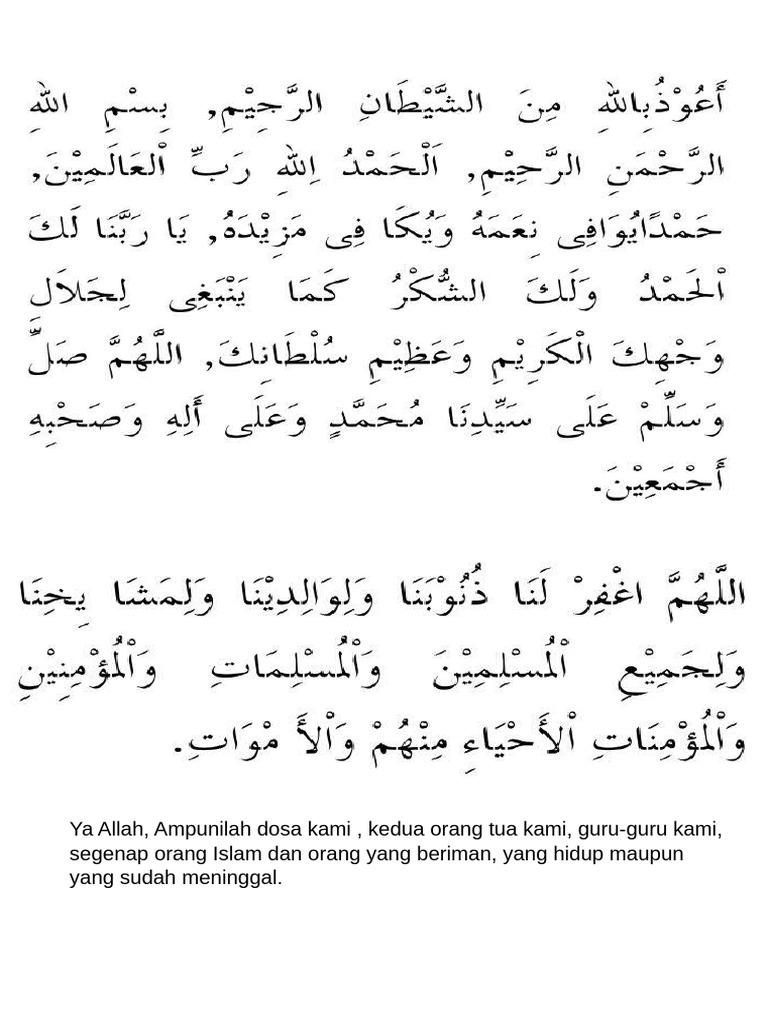 أَعُوْذُبِاللهِ مِنَ الشَّيْطَانِ الرَّجِيْمِ, بِسْمِ اللهِ
الرَّحْمَنِ الرَّحِيْمِ, اَلْحَمْدُ لِلهِ رَبِّ الْعَالَمِيْنَ,
حَمْدًايُوَافِى نِعَمَهُ وَيُكَا فِى مَزِيْدَهُ, يَا رَبَّنَا لَكَ
الْحَمْدُ وَلَكَ الشُّكْرُ كَمَا يَنْبَغِى لِجَلَالِ
وَجْهِكَ الْكَرِيْمِ وَعَظِيْمِ سُلْطَانِكَ, اللَّهُمَّ صَلِّ
وَسَلِّمْ عَلَى سَيِّدِنَا مُحَمَّدٍ وَعَلَى أَلِهِ وَصَحْبِهِ
أَجْمَعِيْنَ.
اللَّهُمَّ اغْفِرْ لَنَا ذُنُوْبَنَا وَلِوَالِدِيْنَا وَلِمَشَا يِخِنَا
وَلِجَمِيْعِ الْمُسْلِمِيْنَ وَالْمُسْلِمَاتِ وَالْمُؤْمِنِيْنِ
وَالْمُؤْمِنَاتِ الْأَحْيَاءِ مِنْهُمْ وَالْأَ مْوَاتِ.
Ya Allah, Ampunilah dosa kami , kedua orang tua kami, guru-guru kami,
segenap orang Islam dan orang yang beriman, yang hidup maupun
yang sudah meninggal.